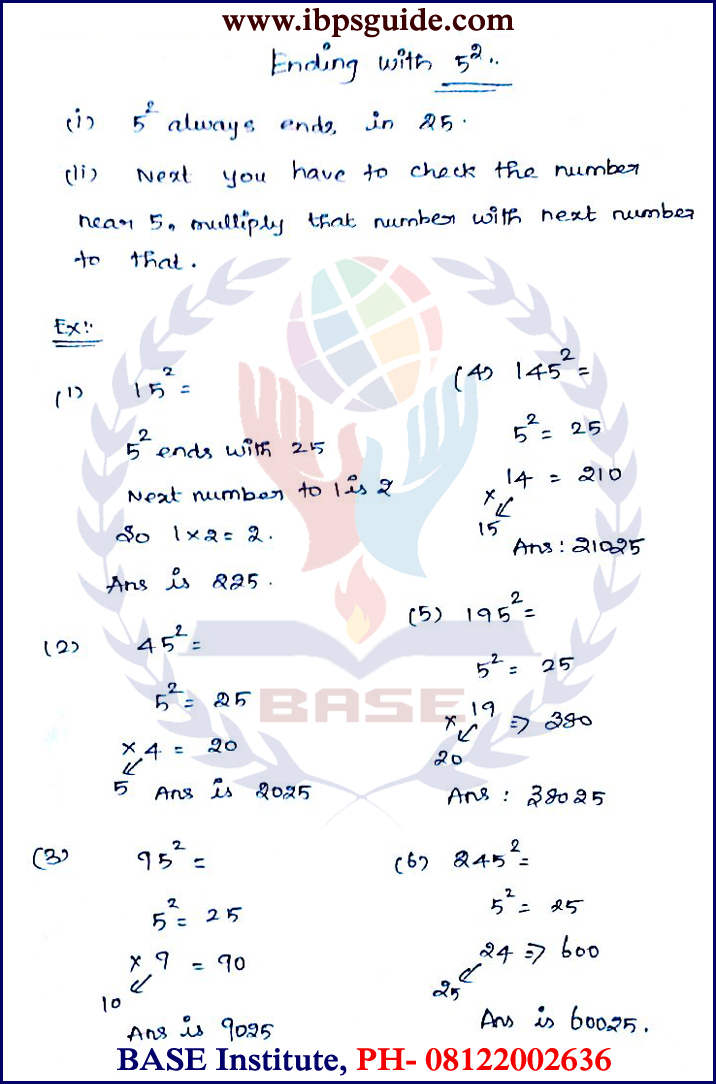 www.ibpsguide.com
Ending with 5²..
(i) 5² always ends in 25.
(ii) Next you have to check the number
near 5, multiply that number with next number
to that.
Ex:-
(1) 15² =
5² ends with 25
Next number to 1 is 2
So 1 x 2 = 2.
Ans is 225.
(2) 45² =
5² = 25
x 4 = 20
5
Ans is 2025
(3) 95² =
5² = 25
x 9 = 90
10
Ans is 9025
(4) 145² =
5² = 25
14 = 210
x
15
Ans : 21025
(5) 195² =
5² = 25
x 19 => 380
20
Ans : 38025
(6) 245² =
5² = 25
24 => 600
25
Ans is 60025.
BASE
BASE Institute, PH- 08122002636